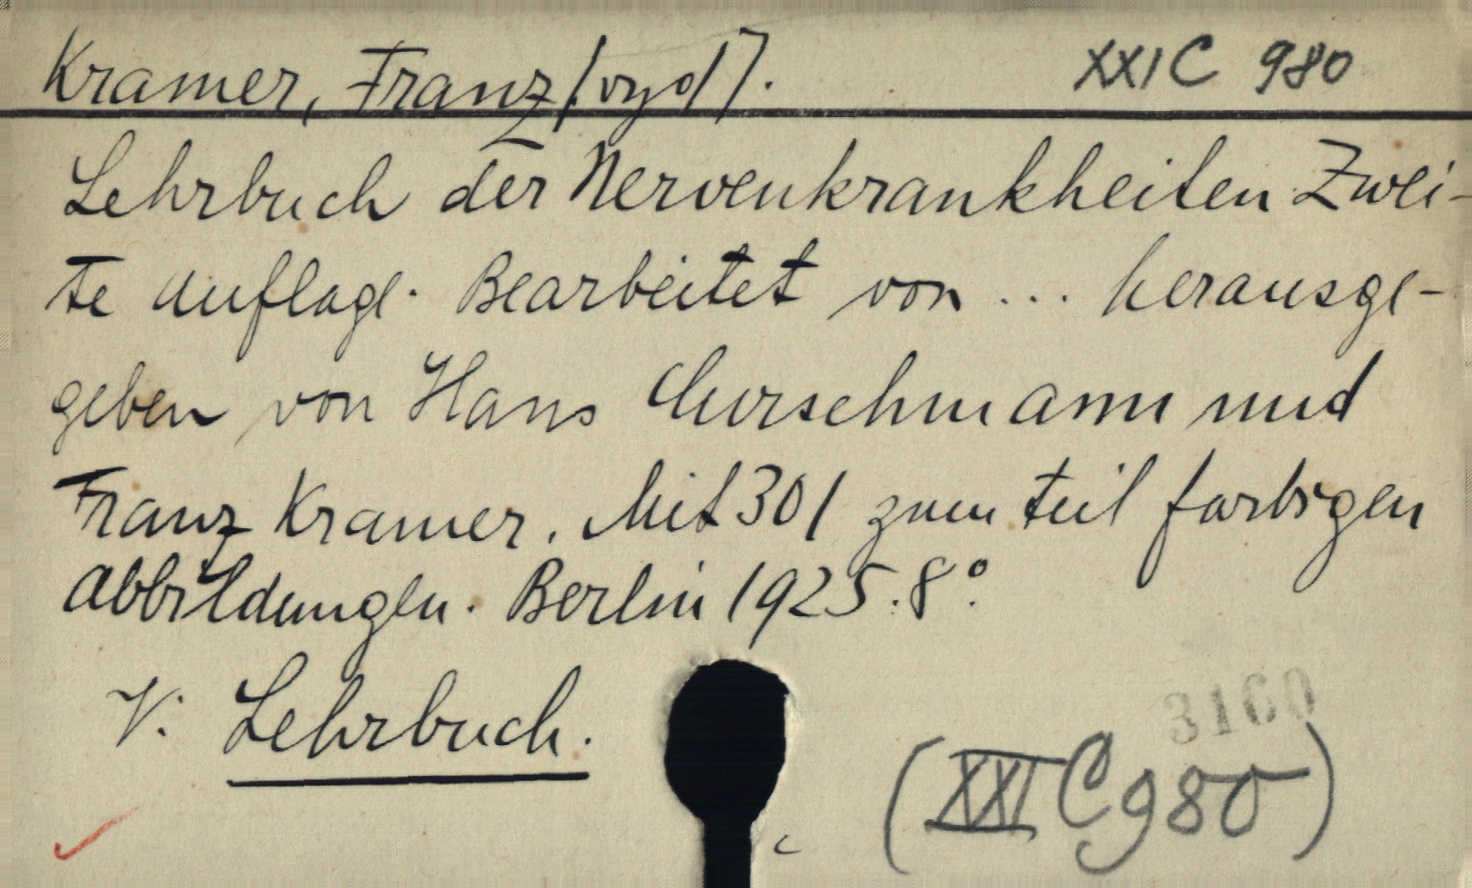 Kramer, Franz [vyd]. XXI C 980
Lehrbuch der Nervenkrankheiten Zwei-
te Auflage. Bearbeitet von ... herausge-
geben von Hans Curschmann und
Franz Kramer. Mit 301 zum teil farbigen
Abbildungen. Berlin 1925. 8°.
V. Lehrbuch.
3160
(XXI C 980)